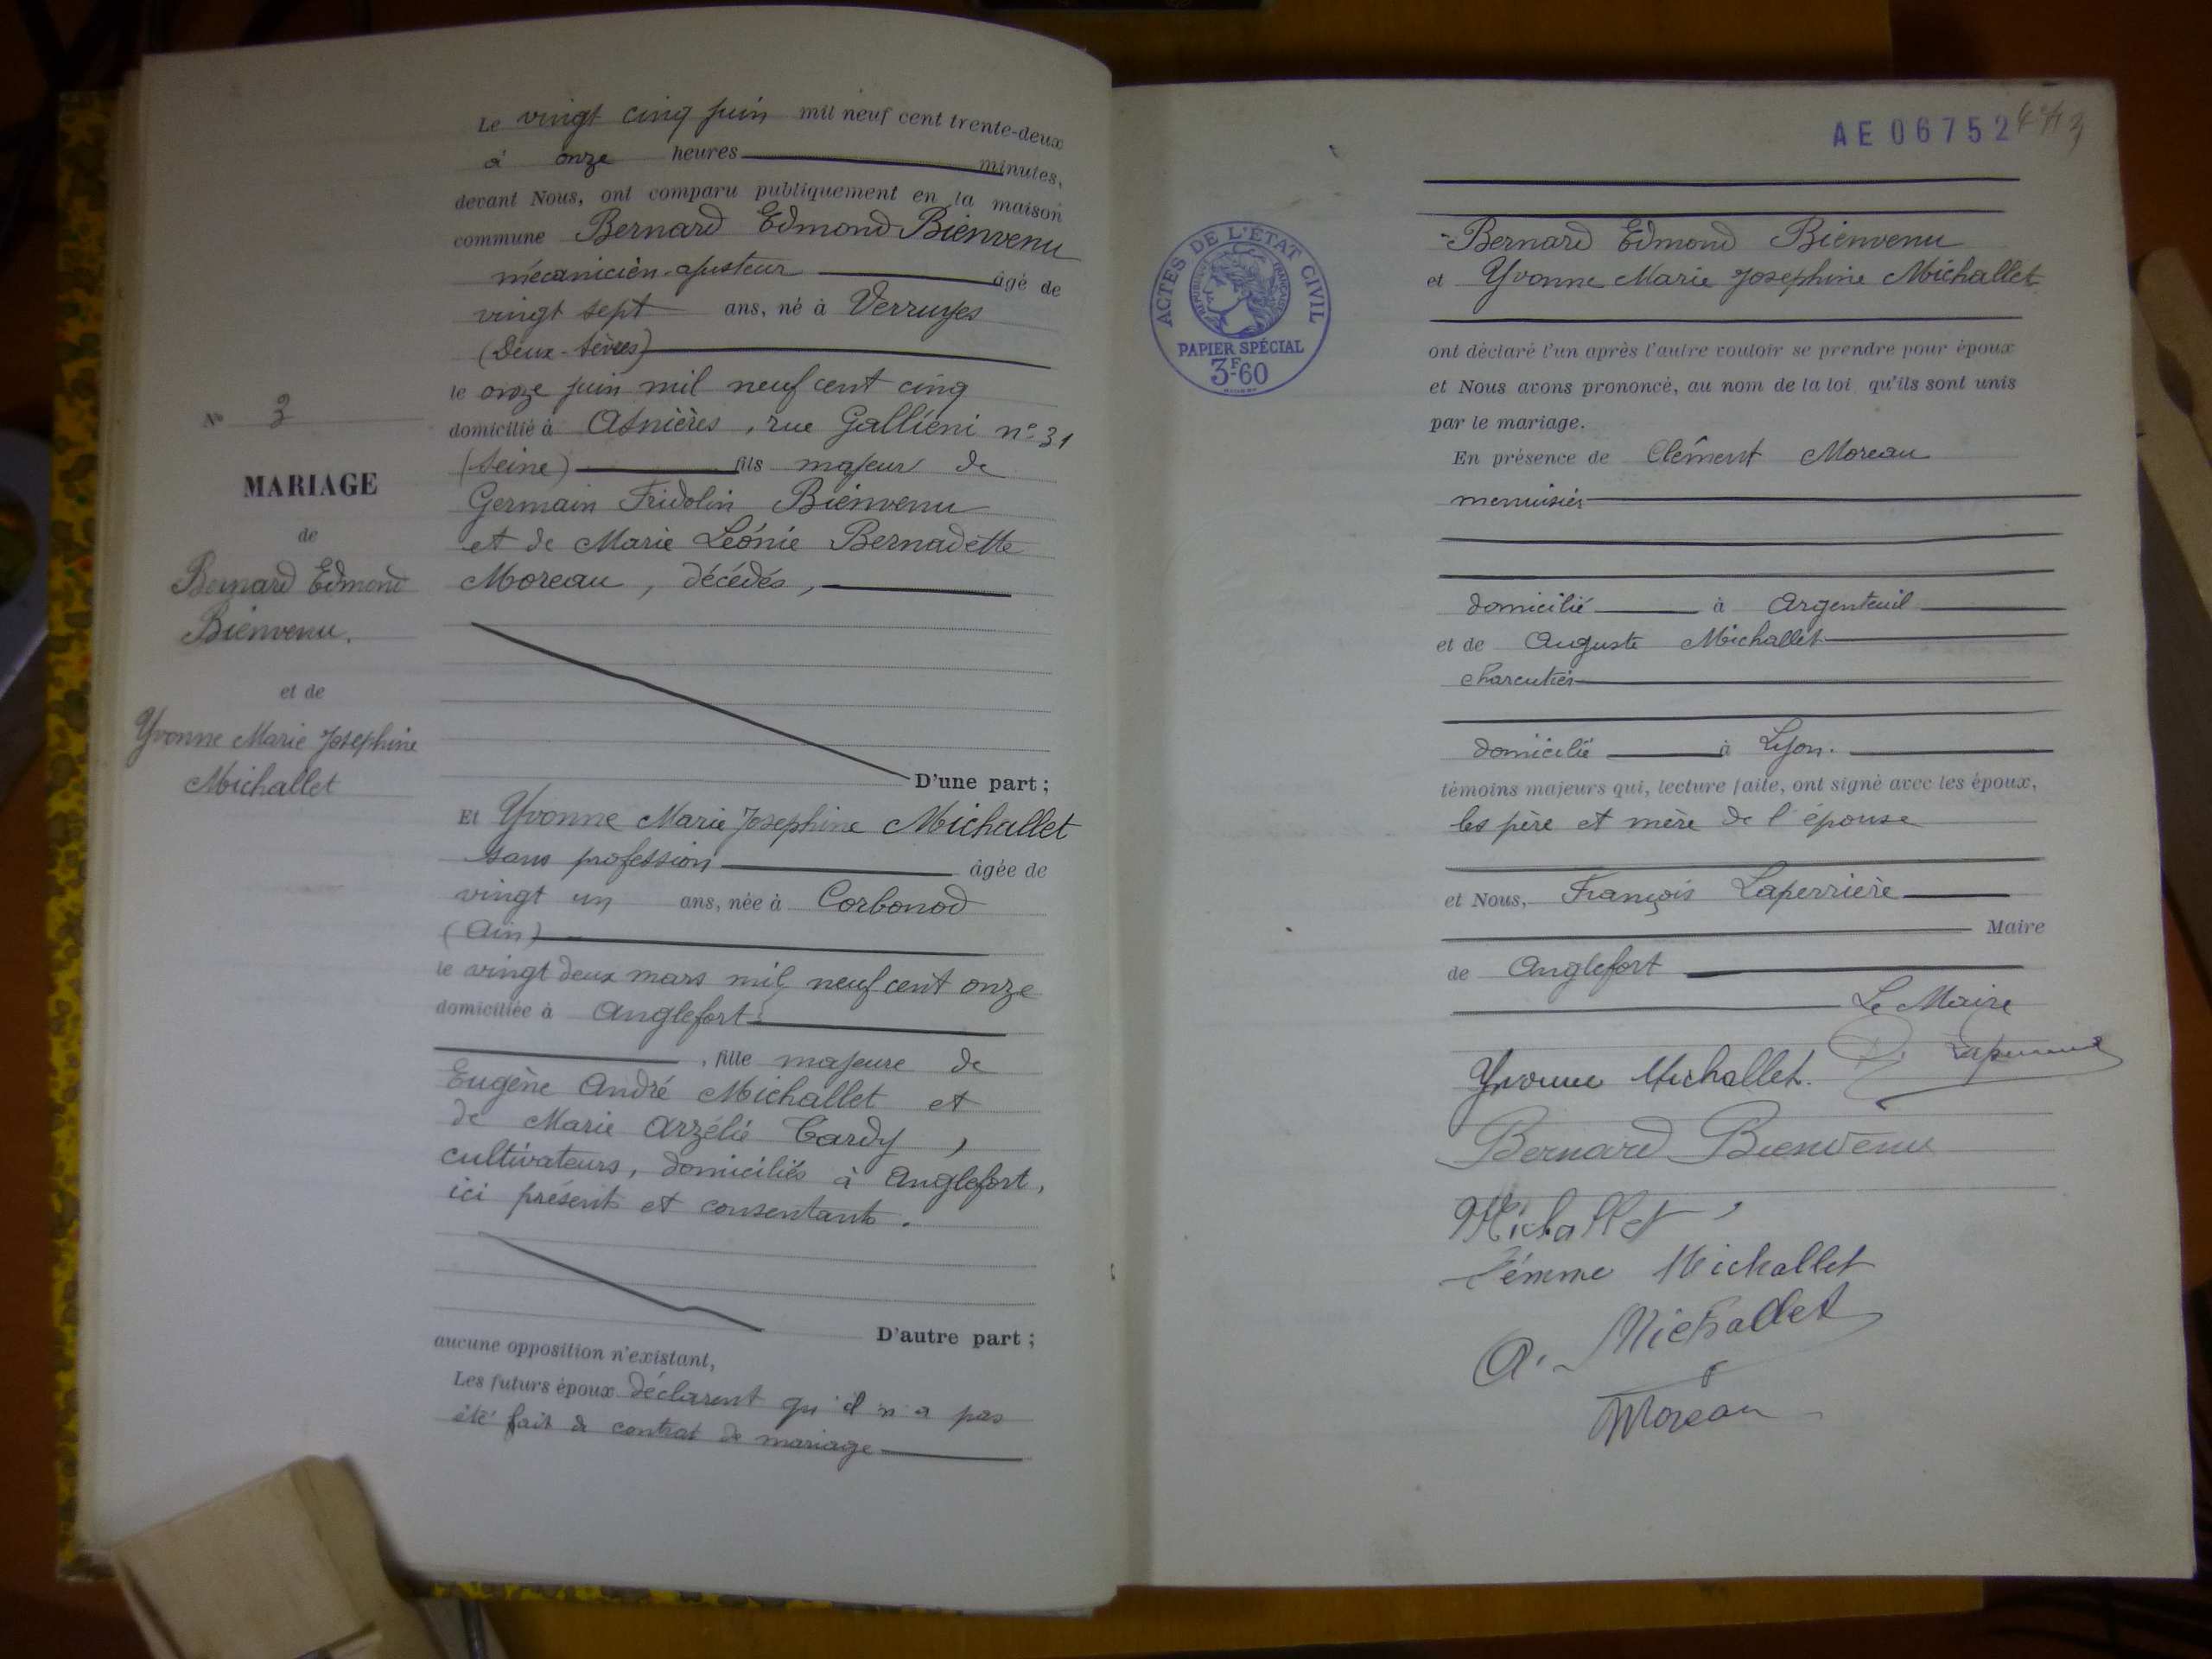 Le vingt cinq juin mil neuf cent trente-deux
à onze heures minutes,
devant Nous, ont comparu publiquement en la maison
commune Bernard Edmond Bienvenu
mécanicien-ajusteur âgé de
vingt sept ans, né à Verruyes
(Deux-Sèvres)
le onze juin mil neuf cent cinq
domicilié à Asnières, rue Galliéni n° 31
(Seine) fils majeur de
Germain Fridolin Bienvenu
et de Marie Léonie Bernadette
Moreau, décédés,
D'une part ;
N° 3
MARIAGE
de
Bernard Edmond
Bienvenu.
et de
Yvonne Marie Joséphine
Michallet
Et Yvonne Marie Joséphine Michallet
sans profession âgée de
vingt un ans, née à Corbonod
(Ain)
le vingt deux mars mil neuf cent onze
domiciliée à Anglefort
, fille majeure de
Eugène André Michallet et
de Marie Arzélie Tardy,
cultivateurs, domiciliés à Anglefort,
ici présents et consentants.
D'autre part ;
aucune opposition n'existant,
Les futurs époux déclarent qu'il n'a pas
été fait de contrat de mariage
AE 06752
ACTES DE L'ÉTAT CIVIL
RÉPUBLIQUE FRANÇAISE
PAPIER SPÉCIAL
3F60
Bernard Edmond Bienvenu
et Yvonne Marie Joséphine Michallet
ont déclaré l'un après l'autre vouloir se prendre pour époux
et Nous avons prononcé, au nom de la loi qu'ils sont unis
par le mariage.
En présence de Clément Moreau
menuisier
domicilié à Argenteuil
et de Auguste Michallet
charcutier
domicilié à Lyon.
témoins majeurs qui, lecture faite, ont signé avec les époux,
les père et mère de l'épouse
et Nous, François Laperrière
Maire
de Anglefort
Le Maire
Laperrière
Yvonne Michallet.
Bernard Bienvenu
Michallet
Femme Michallet
A. Michallet
Moreau